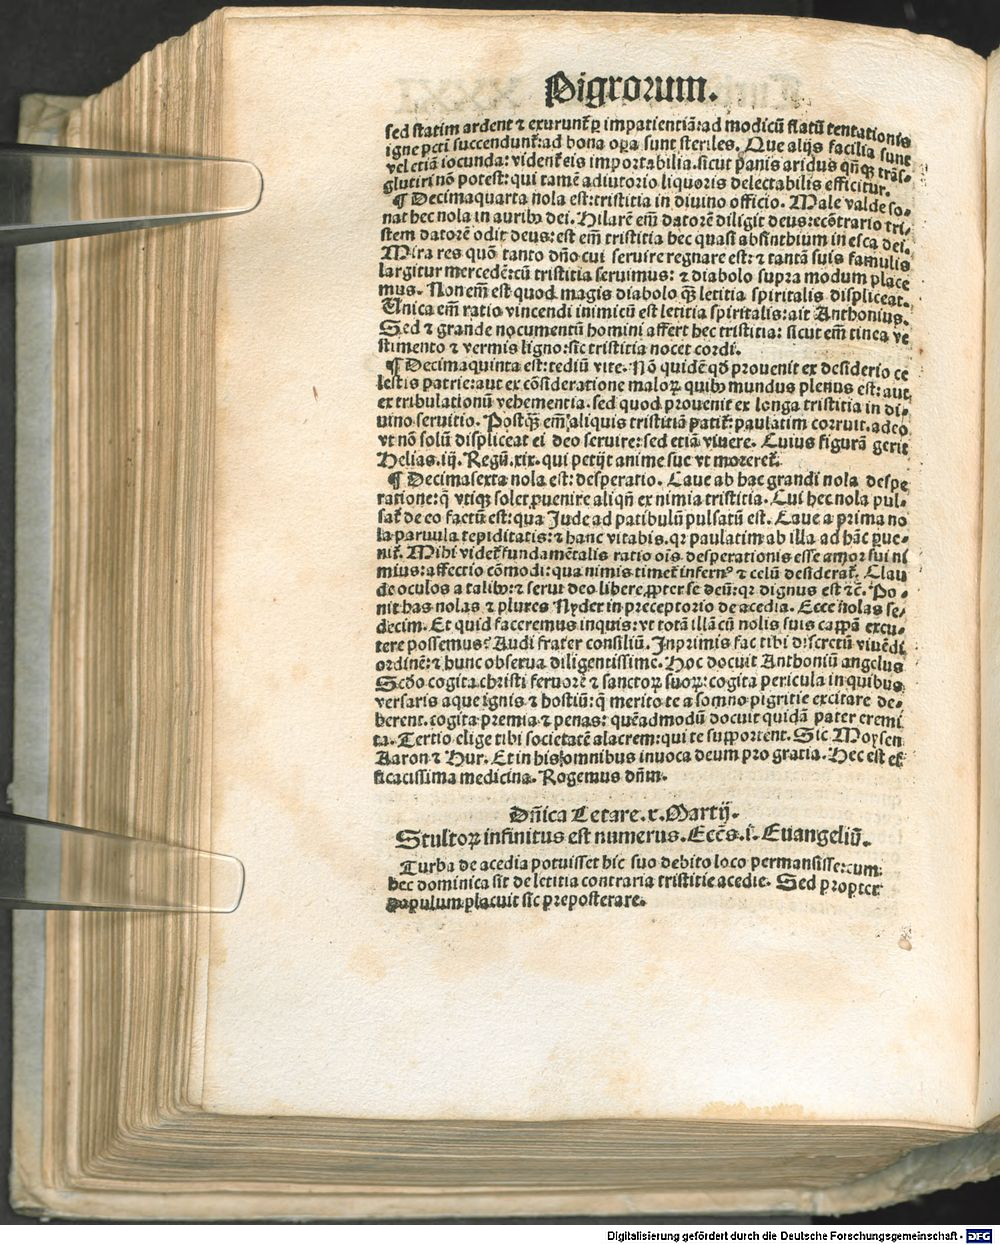 Pigrorum.
sed statim ardent ⁊ exurunt᷑ ꝑ impatientiā: ad modicū flatū tentationis
igne pcti succendunt᷑: ad bona oꝑa sunt steriles. Que alijs facilia sunt
vel etiā iocunda: vident᷑ eis importabilia. sicut panis aridus qn̄qꝫ trās-
glutiri nō potest: qui tamē adiutorio liquoris delectabilis efficitur.
¶ Decimaquarta nola est: tristitia in diuino officio. Male valde so-
nat hec nola in auribꝰ dei. Hilarē em̄ datorē diligit deus: ecōtrario tri-
stem datorē odit deus: est em̄ tristitia hec quasi absinthium in esca dei.
Mira res quō tanto dño cui seruire regnare est: ⁊ tantā suis famulis
largitur mercedē: cū tristitia seruimus: ⁊ diabolo supra modum place
mus. Non em̄ est quod magis diabolo qꝫ letitia spiritalis displiceat.
Unica em̄ ratio vincendi inimicū est letitia spiritalis: ait Anthonius.
Sed ⁊ grande nocumentū homini affert hec tristitia: sicut em̄ tinea ve
stimento ⁊ vermis ligno: sic tristitia nocet cordi.
¶ Decimaquinta est: tediū vite. Nō quidē qď prouenit ex desiderio ce
lestis patrie: aut ex cōsideratione maloꝝ quibꝰ mundus plenus est: aut
ex tribulationū vehementia. sed quod prouenit ex longa tristitia in di-
uino seruitio. Postqꝫ em̄ aliquis tristitiā patit᷑: paulatim corruit. adeo
vt nō solū displiceat ei deo seruire: sed etiā viuere. Cuius figurā gerit
Helias. iij. Regū. xix. qui petijt anime sue vt moreret᷑.
¶ Decimasexta nola est: desperatio. Caue ab hac grandi nola despe
ratione: q̄ vtiqꝫ solet ꝓuenire aliqn̄ ex nimia tristitia. Cui hec nola pul-
sat᷑ de eo factū est: qua Jude ad patibulū pulsatū est. Caue a prima no
la paruula tepiditatis: ⁊ hanc vitabis. qꝛ paulatim ab illa ad hāc ꝑue-
nit᷑. Mihi videt᷑ fundamētalis ratio oīs desperationis esse amor sui ni
mius: affectio cōmodi: qua nimis timet᷑ infernꝰ ⁊ celū desiderat᷑. Clau
de oculos a talibꝰ: ⁊ serui deo libere ꝓpter se deū: qꝛ dignus est ⁊c̄. Po-
nit has nolas ⁊ plures Nyder in preceptorio de acedia. Ecce nolas se-
decim. Et quid faceremus inquis: vt totā illā cū nolis suis cappā excu-
tere possemus? Audi frater consiliū. Inprimis fac tibi discretū viuēdi
ordinē: ⁊ hunc obserua diligentissime. Hoc docuit Anthoniū angelus
Scďo cogita christi feruorē ⁊ sanctoꝝ suoꝝ: cogita pericula in quibus
versaris aque ignis ⁊ hostiū: q̄ merito te a somno pigritie excitare de-
berent. cogita premia ⁊ penas: quēadmodū docuit quidā pater eremi
ta. Tertio elige tibi societatē alacrem: qui te supportent. Sic Moysen
Aaron ⁊ Hur. Et in his omnibus inuoca deum pro gratia. Hec est ef
ficacissima medicina. Rogemus dn̄m.
Dn̄ica Letare. x. Martij.
Stultoꝝ infinitus est numerus. Eccs̄. i. Euangeliū.
Turba de acedia potuisset hic suo debito loco permansisse: cum
hec dominica sit de letitia contraria tristitie acedie. Sed propter
papulum placuit sic preposterare.
Digitalisierung gefördert durch die Deutsche Forschungsgemeinschaft - DFG